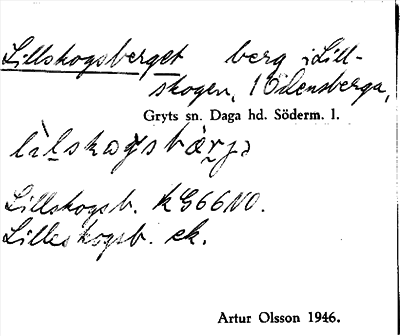 Lillskogsberget berg i Lill-
skogen, 1 Ödensberga,
Gryts sn. Daga hd. Söderm. l.
lìlskogsbärjə
Lillskogsb. KG66NO.
Lilleskogsb. ek.
Artur Olsson 1946.